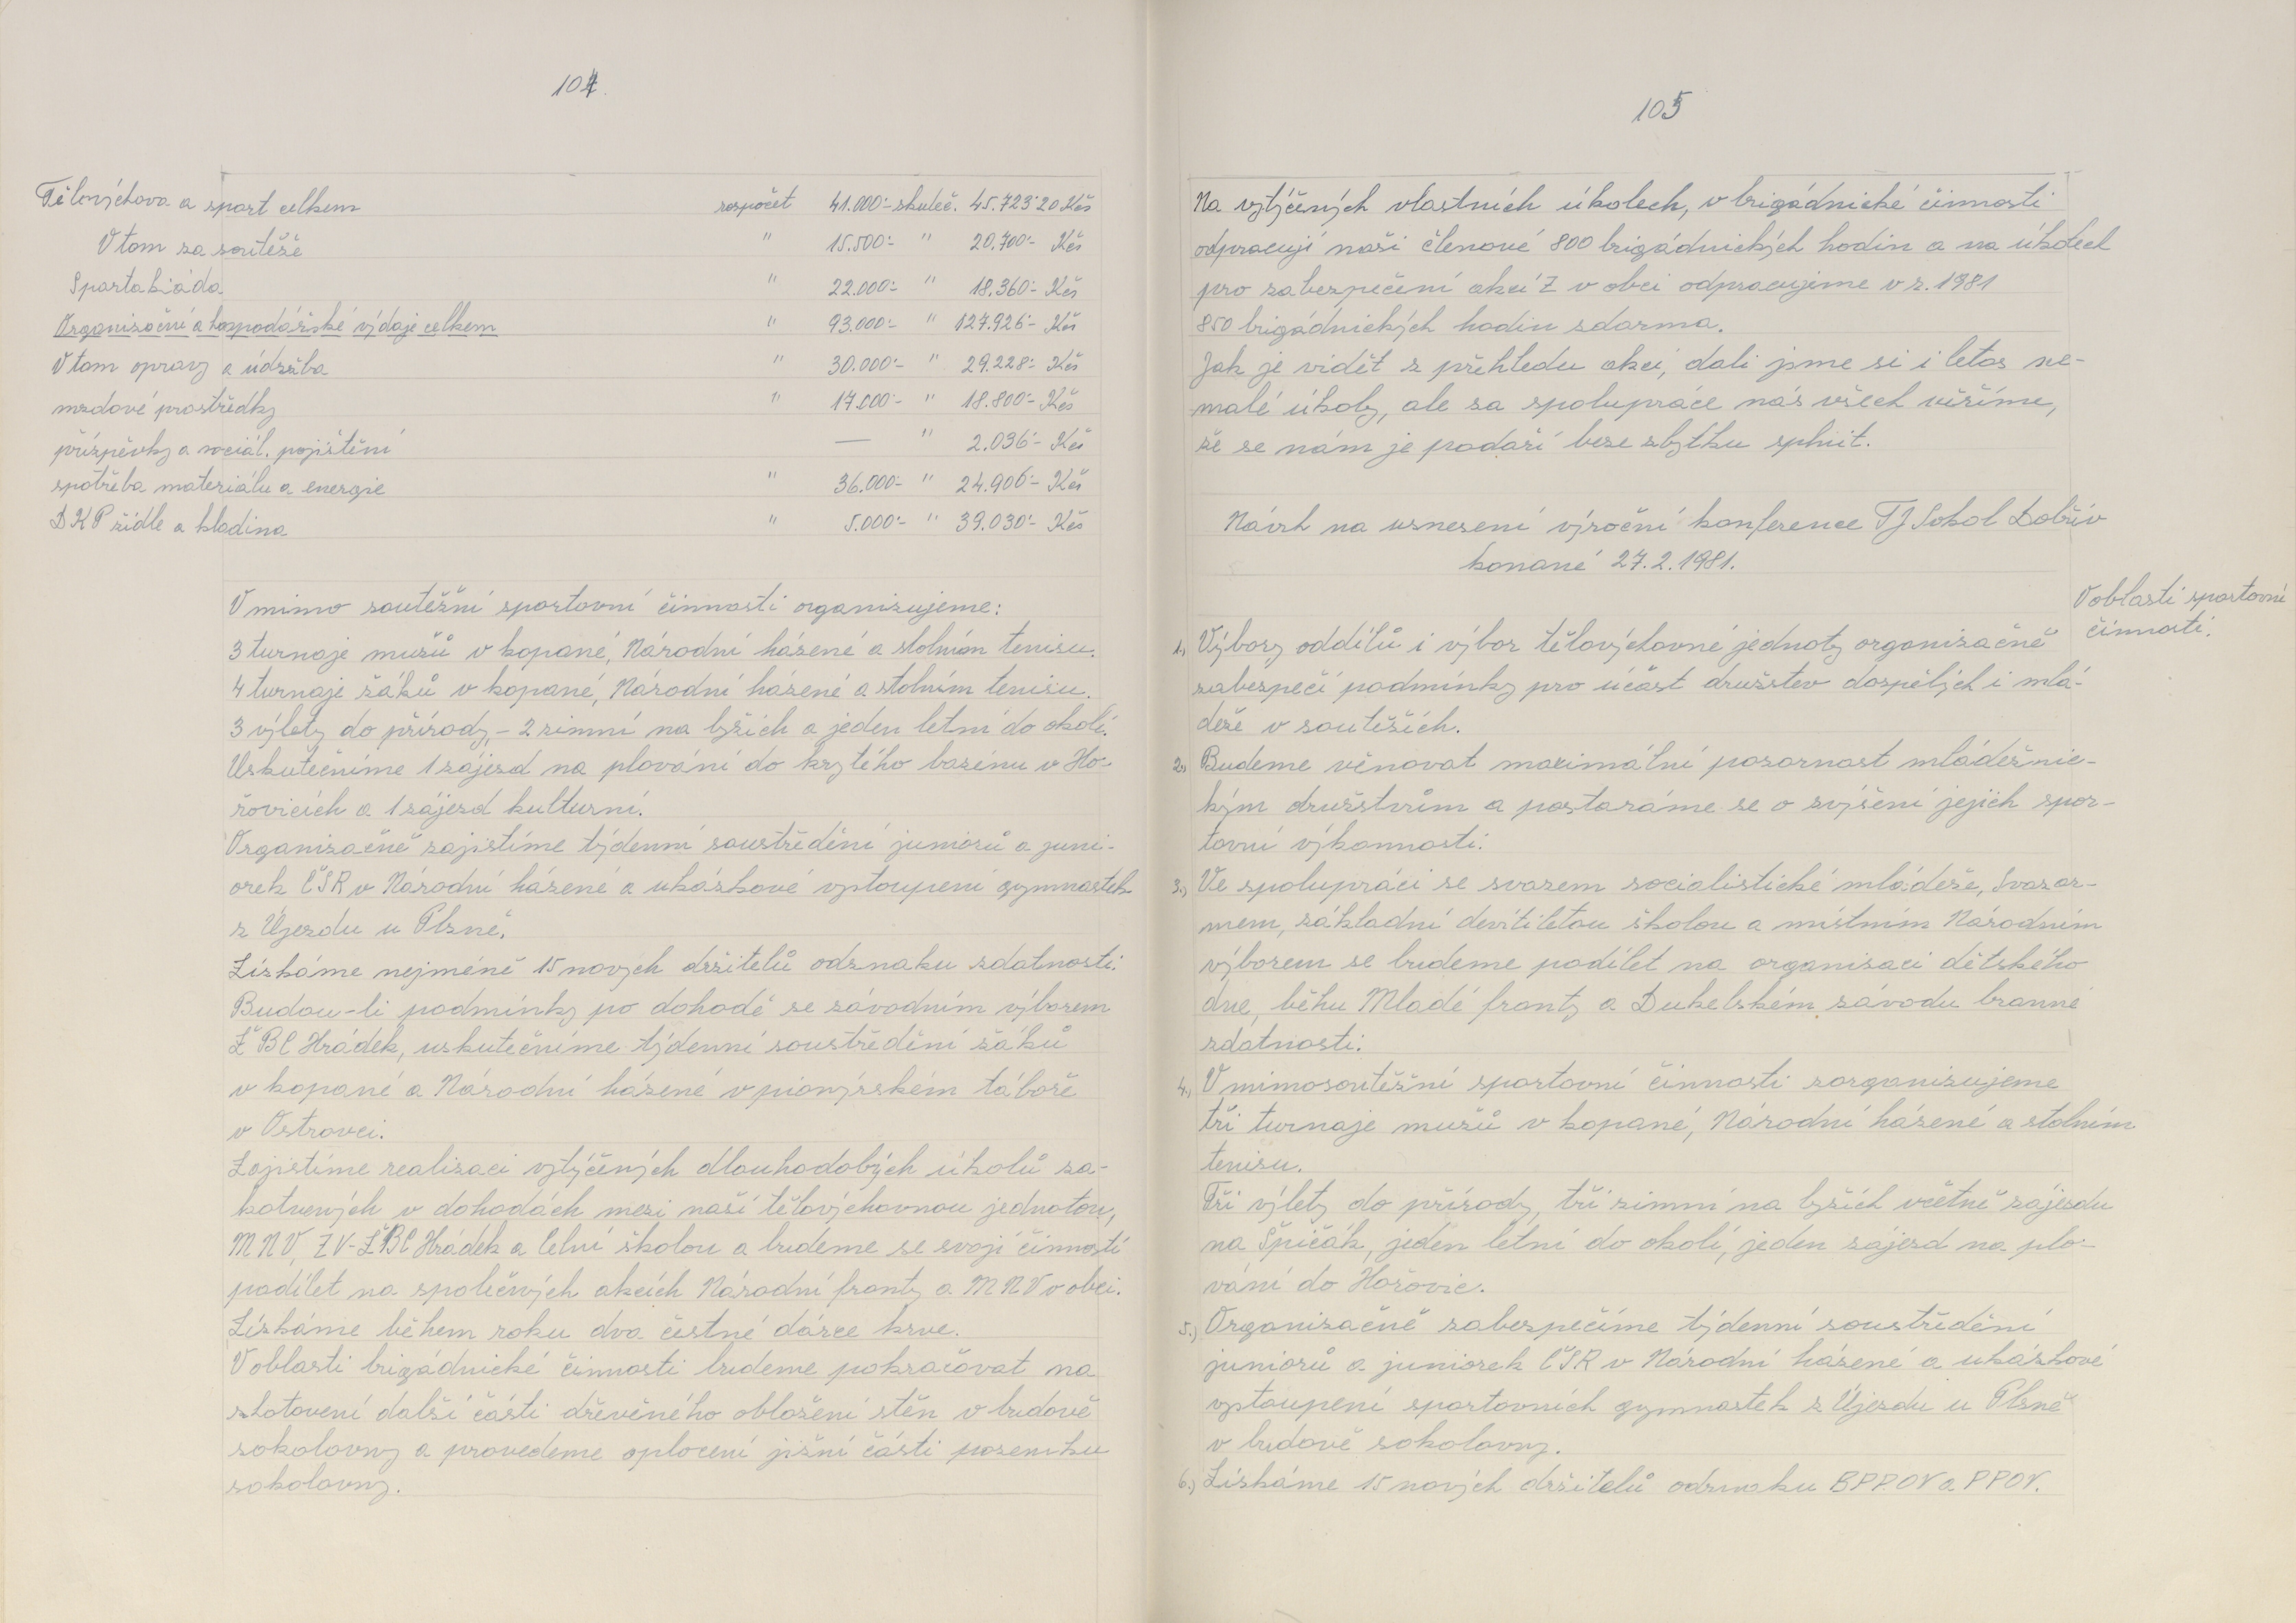 104.
Tělovýchova a sport celkem rozpočet 41.000·- skuteč. 45.723·20 Kčs
V tom za soutěže " 15.500·- " 20.700·- Kčs
Spartakiáda " 22.000·- " 18.360·- Kčs
Organizační a hospodářské výdaje celkem " 93.000·- " 127.926·- Kčs
V tom opravy a údržba " 30.000·- " 29.228·- Kčs
mzdové prostředky " 17.000·- " 18.800·- Kčs
příspěvky a sociál. pojištění — " 2.036·- Kčs
spotřeba materiálu a energie " 36.000·- " 24.906·- Kčs
DKP židle a kladina " 5.000·- " 39.030·- Kčs
V mimo soutěžní sportovní činnosti organizujeme:
3 turnaje mužů v kopané, Národní házené a stolním tenisu.
4 turnaje žáků v kopané, Národní házené a stolním tenisu.
3 výlety do přírody, - 2 zimní na lyžích a jeden letní do okolí.
Uskutečníme 1 zájezd na plování do krytého bazénu v Ho-
řovicích a 1 zájezd kulturní.
Organizačně zajistíme týdenní soustředění juniorů a juni-
orek ČSR v Národní házené a ukázkové vystoupení gymnastek
z Újezdu u Plzně.
Získáme nejméně 15 nových držitelů odznaku zdatnosti.
Budou-li podmínky po dohodě se závodním výborem
ŽBC Hrádek, uskutečníme týdenní soustředění žáků
v kopané a Národní házené v pionýrském táboře
v Ostrovci.
Zajistíme realizaci vytýčených dlouhodobých úkolů za-
kotvených v dohodách mezi naší tělovýchovnou jednotou,
MNV, ZV-ŽBC Hrádek a Celní školou a budeme se svojí činností
podílet na společných akcích Národní fronty a MNV v obci.
Získáme během roku dva čestné dárce krve.
V oblasti brigádnické činnosti budeme pokračovat na
zhotovení další části dřevěného obložení stěn v budově
sokolovny a provedeme oplocení jižní části pozemku
sokolovny.
105
Na vytýčených vlastních úkolech, v brigádnické činnosti
odpracují naši členové 800 brigádnických hodin a na úkolech
pro zabezpečení akcí Z v obci odpracujeme v r. 1981
850 brigádnických hodin zdarma.
Jak je vidět z přehledu akcí, dali jsme si i letos ne-
malé úkoly, ale za spolupráce nás všech věříme,
že se nám je podaří beze zbytku splnit.
Návrh na usnesení výroční konference TJ Sokol Dobřív
konané 27.2.1981.
V oblasti sportovní
činnosti.
1., Výbory oddílů i výbor tělovýchovné jednoty organizačně
zabezpečí podmínky pro účast družstev dospělých i mlá-
deže v soutěžích.
2., Budeme věnovat maximální pozornost mládežnic-
kým družstvům a postaráme se o zvýšení jejich spor-
tovní výkonnosti.
3., Ve spolupráci se svazem socialistické mládeže, Svazar-
mem, základní devítiletou školou a místním Národním
výborem se budeme podílet na organizaci dětského
dne, běhu Mladé fronty a Dukelském závodu branné
zdatnosti.
4., V mimosoutěžní sportovní činnosti zorganizujeme
tři turnaje mužů v kopané, Národní házené a stolním
tenisu.
Tři výlety do přírody, tři zimní na lyžích včetně zájezdu
na Špičák, jeden letní do okolí, jeden zájezd na plo-
vání do Hořovic.
5.) Organizačně zabezpečíme týdenní soustředění
juniorů a juniorek ČSR v Národní házené a ukázkové
vystoupení sportovních gymnastek z Újezdu u Plzně
v budově sokolovny.
6.) Získáme 15 nových držitelů odznaku BPPOV a PPOV.